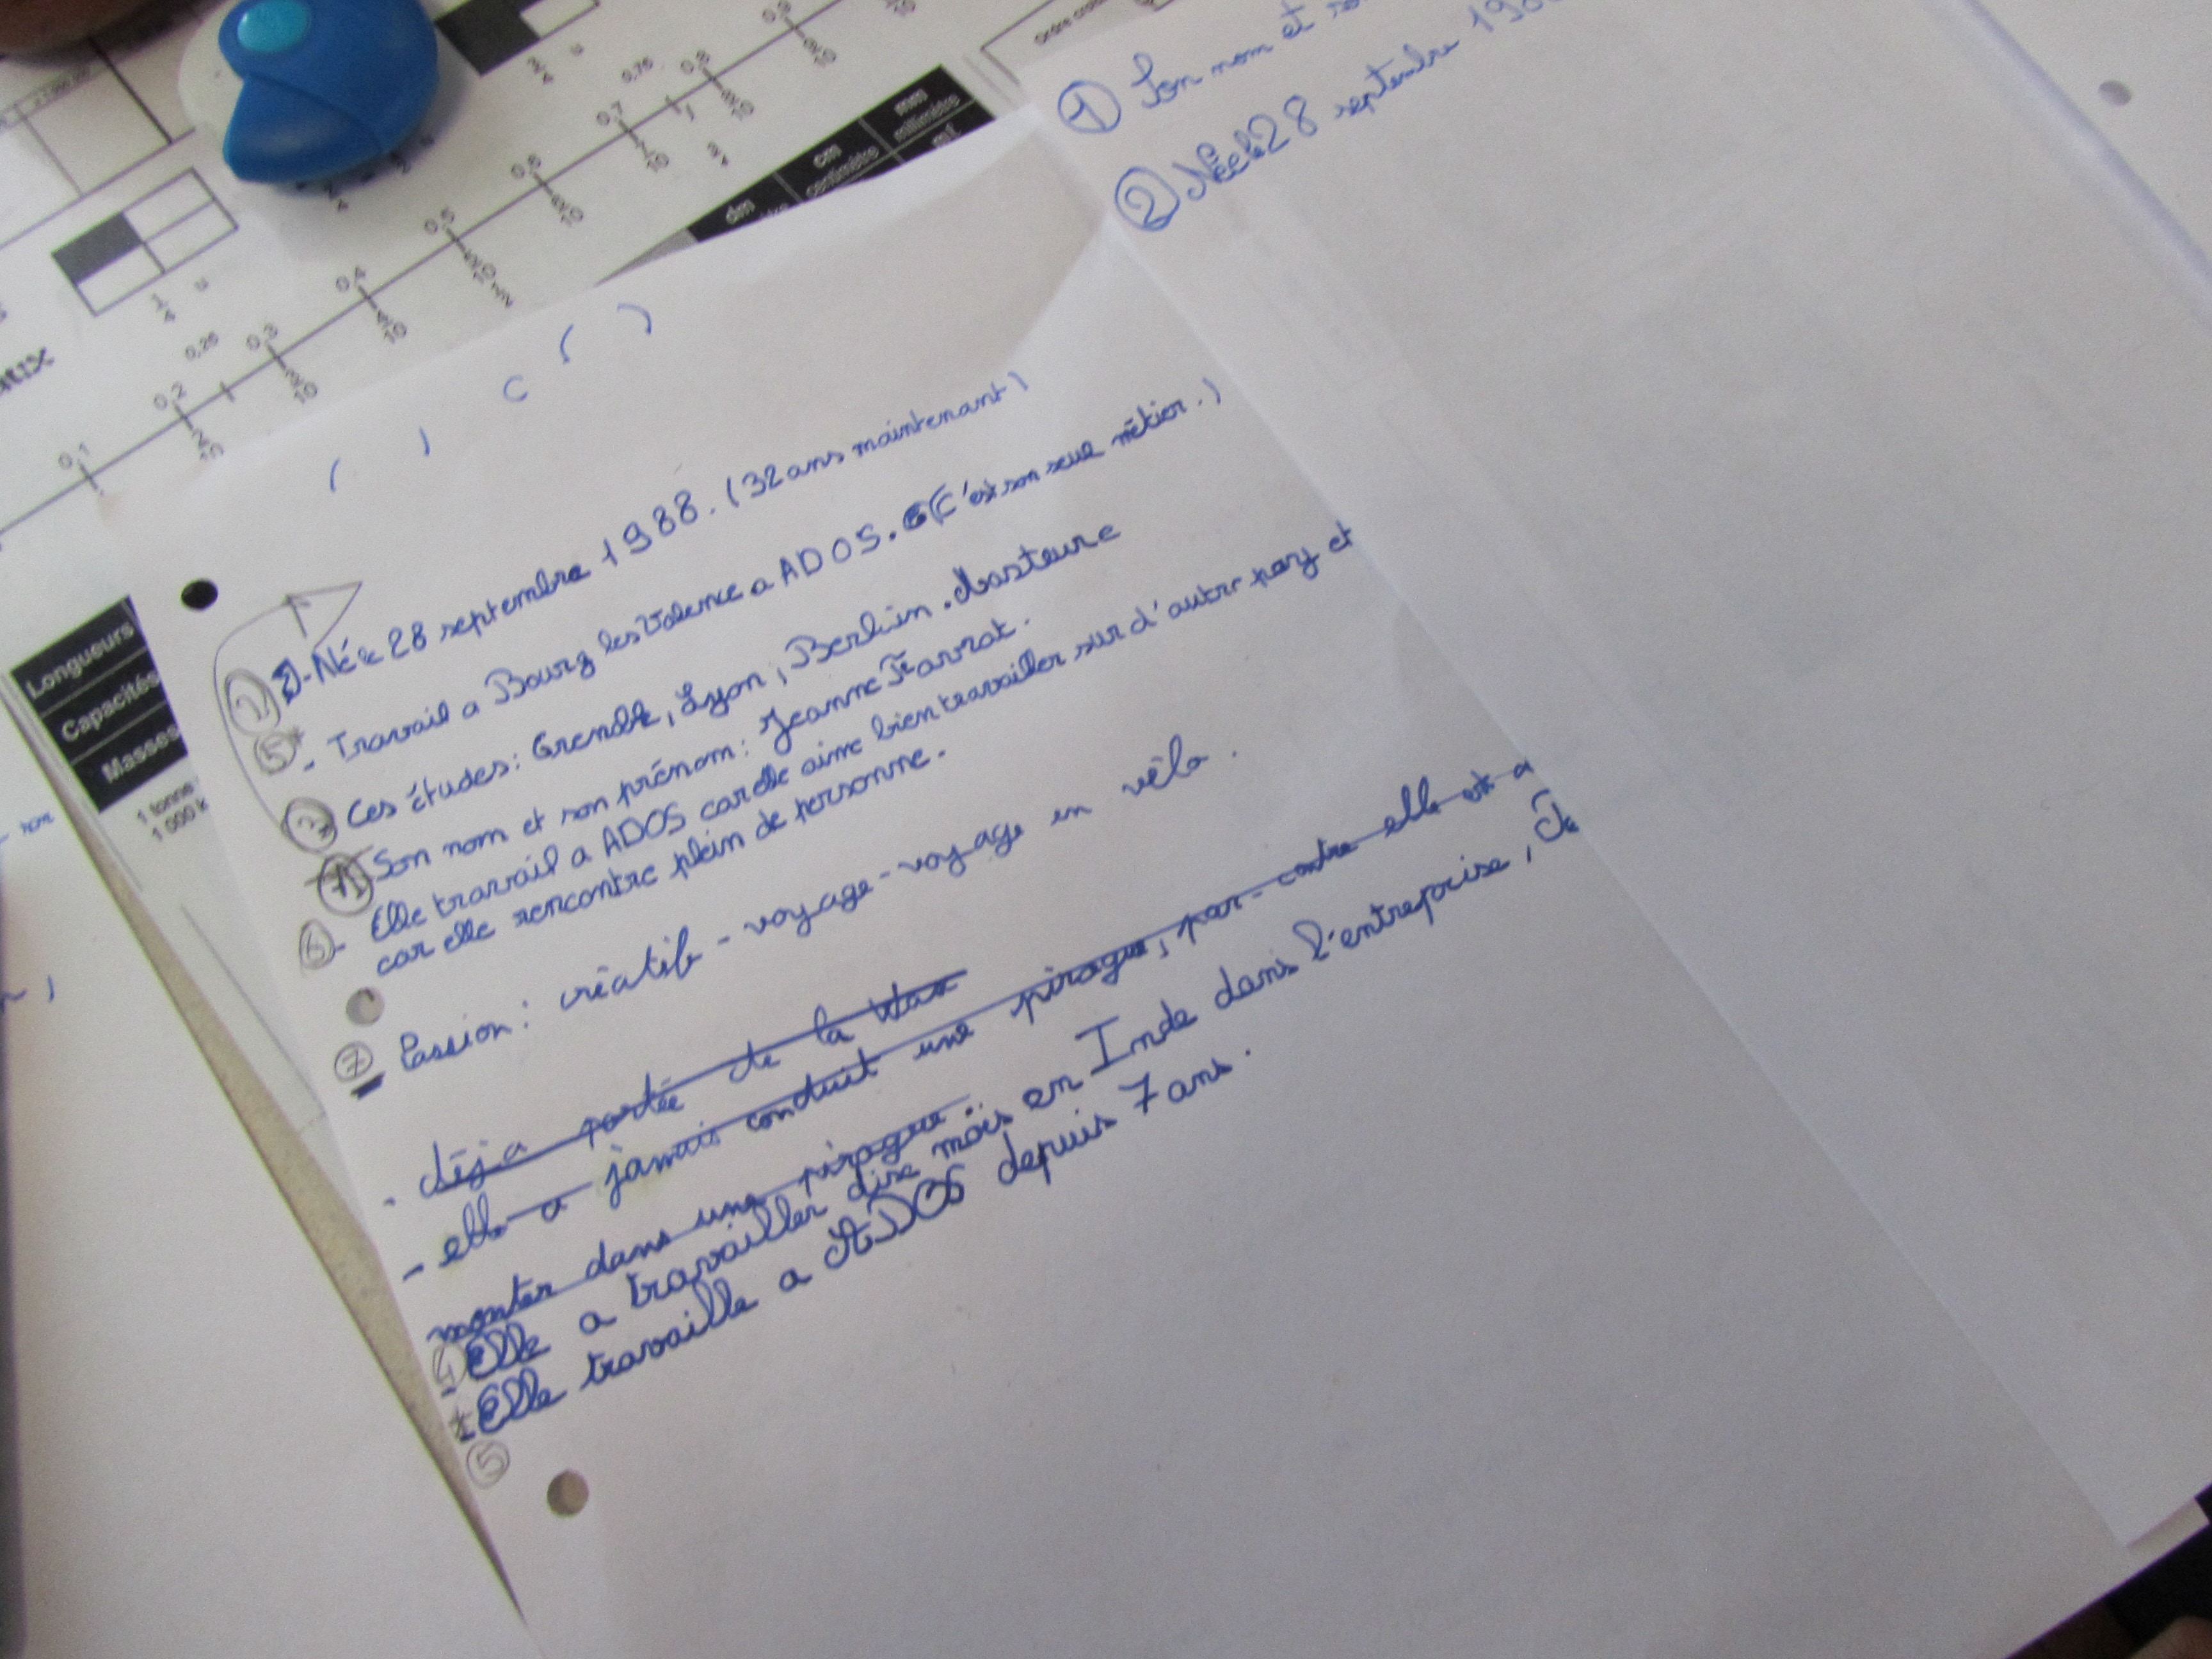 0,1 0,2 0,25 0,3 0,4 0,5 0,6 0,7 0,75 0,8 0,9
2/10 3/10 4/10 6/10 7/10 8/10 9/10
1/4 u
3/4 u
dm cm centimètre mm millimètre
Longueurs
Capacités
Masses
1 tonne
① Son nom et
② Née le 28 septembre
② - Née 28 septembre 1988. (32 ans maintenant)
⑤* - Travail a Bourg les Valence a ADOS. (C'est son seul métier.)
③ Ces études : Grenoble, Lyon, Berlin. Masteure
① Son nom et son prénom : Jeanne Farrat.
⑥ - Elle travail a ADOS car elle aime bien travailler sur d'autre pory et
car elle rencontre plein de personne.
⑦ Passion : créatife - voyage - voyage en vélo.
- déja portée de la
- elle a jamais conduit une pirogue, par-contre elle est a
monter dans une pirogue
④ - Elle a travailler dix mois en Inde dans l'entreprise,
* - Elle travaille a ADOS depuis 7 ans.
⑤